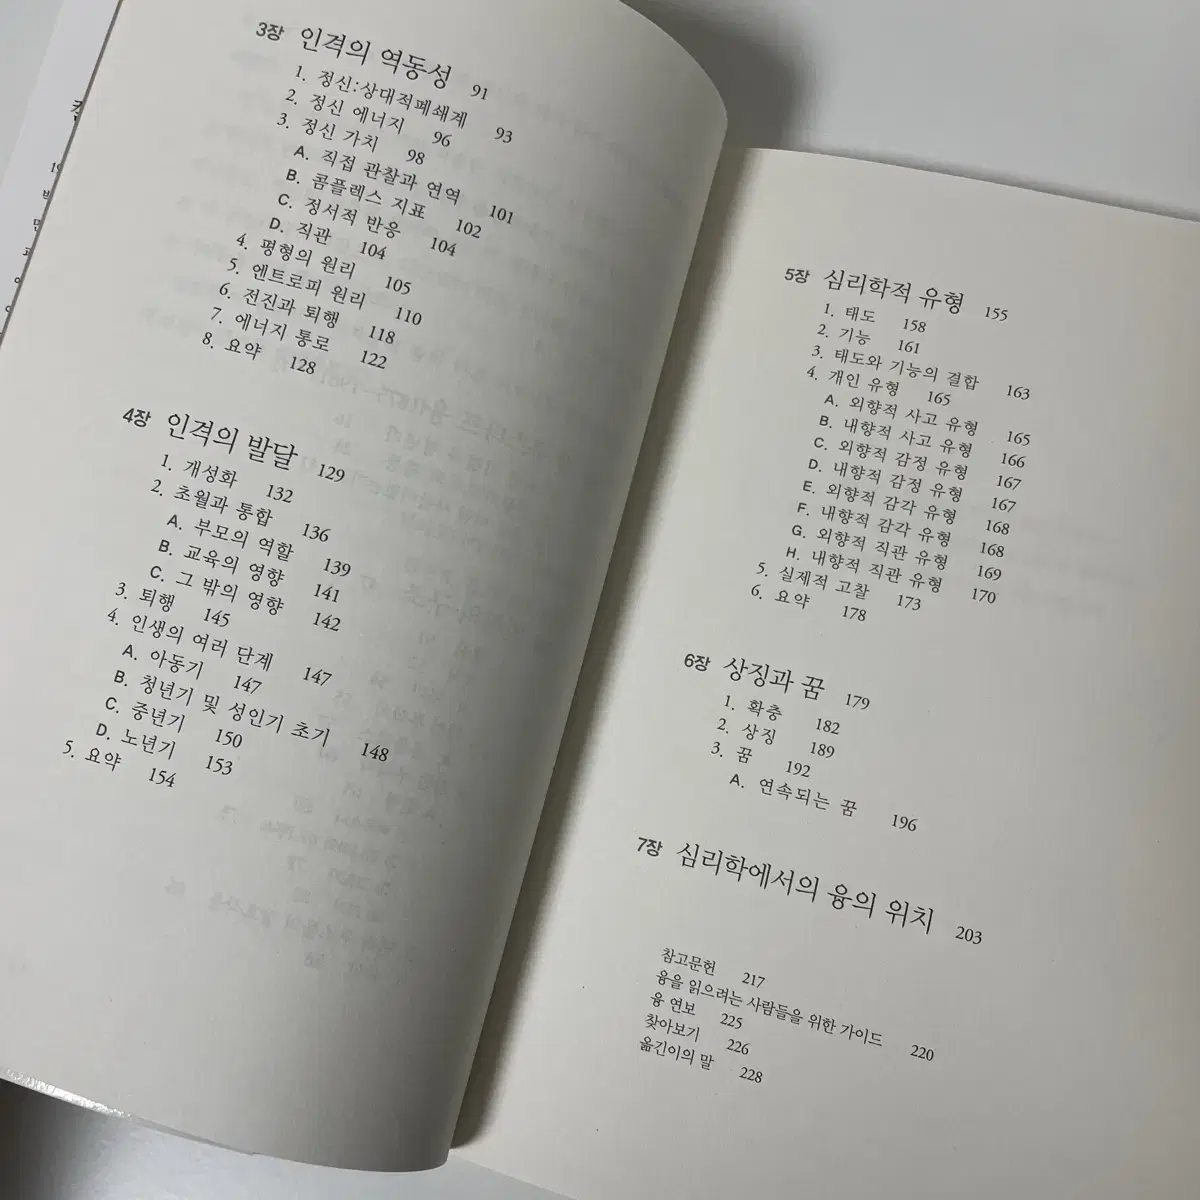 3장 인격의 역동성 91
1. 정신:상대적폐쇄계 93
2. 정신 에너지 96
3. 정신 가치 98
A. 직접 관찰과 연역 101
B. 콤플렉스 지표 102
C. 정서적 반응 104
D. 직관 104
4. 평형의 원리 105
5. 엔트로피 원리 110
6. 전진과 퇴행 118
7. 에너지 통로 122
8. 요약 128
4장 인격의 발달 129
1. 개성화 132
2. 초월과 통합 136
A. 부모의 역할 139
B. 교육의 영향 141
C. 그 밖의 영향 142
3. 퇴행 145
4. 인생의 여러 단계 147
A. 아동기 147
B. 청년기 및 성인기 초기 148
C. 중년기 150
D. 노년기 153
5. 요약 154
5장 심리학적 유형 155
1. 태도 158
2. 기능 161
3. 태도와 기능의 결합 163
4. 개인 유형 165
A. 외향적 사고 유형 165
B. 내향적 사고 유형 166
C. 외향적 감정 유형 167
D. 내향적 감정 유형 167
E. 외향적 감각 유형 168
F. 내향적 감각 유형 168
G. 외향적 직관 유형 169
H. 내향적 직관 유형 170
5. 실제적 고찰 173
6. 요약 178
6장 상징과 꿈 179
1. 확충 182
2. 상징 189
3. 꿈 192
A. 연속되는 꿈 196
7장 심리학에서의 융의 위치 203
참고문헌 217
융을 읽으려는 사람들을 위한 가이드 220
융 연보 225
찾아보기 226
옮긴이의 말 228